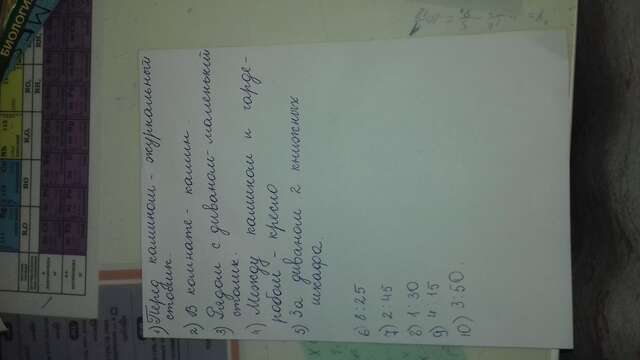 БИОЛОГИЯ
R₂O RO R₂O₃ RO₂
RH₄
1) Перед камином - журнальный
столик.
2) В комнате - камин.
3) Рядом с диваном - маленький
столик.
4) Между камином и гарде-
робом - кресло
5) За диваном 2 книжных
шкафа.
6) 8:25
7) 2:45
8) 1:30
9) 4:15
10) 3:50.